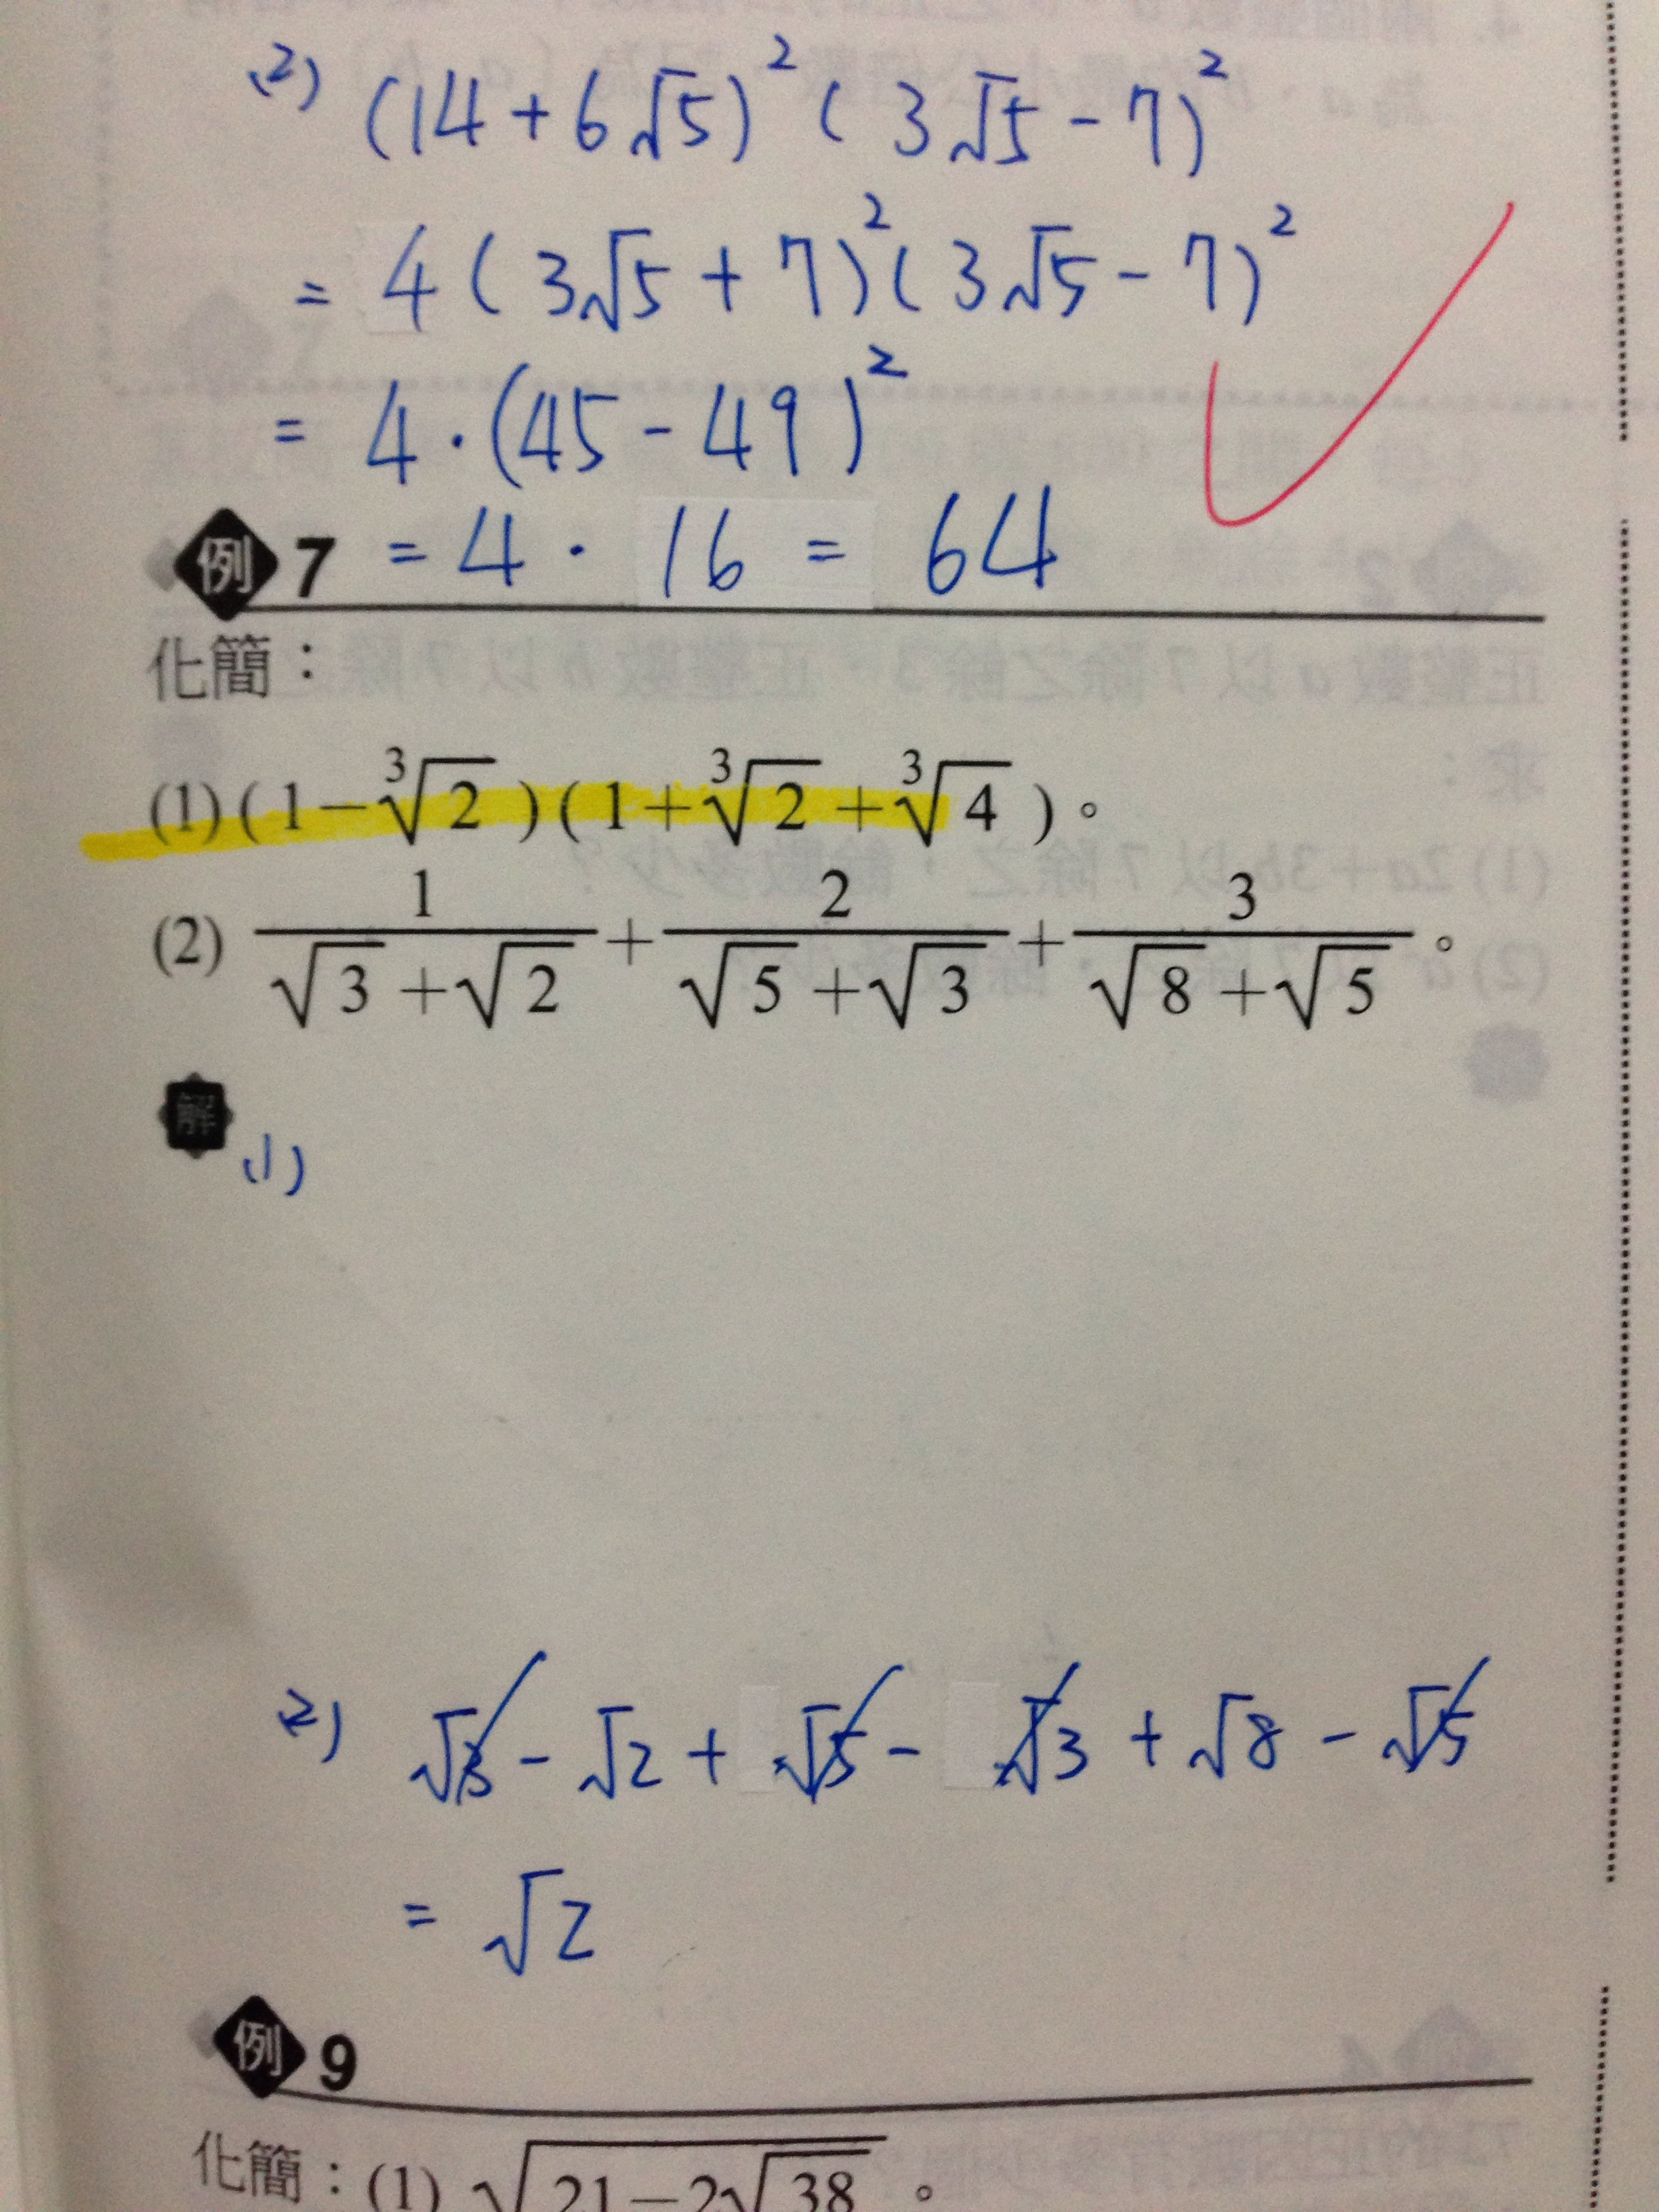 (2) (14+6√5)²(3√5-7)²
= 4(3√5+7)²(3√5-7)²
= 4·(45-49)²
例 7 = 4·16 = 64
化簡：
(1) (1-∛2)(1+∛2+∛4)。
(2) 1/(√3+√2) + 2/(√5+√3) + 3/(√8+√5)。
解 (1)
(2) √3-√2+√5-√3+√8-√5
= √2
例 9
化簡：(1) √(21-2√38)。